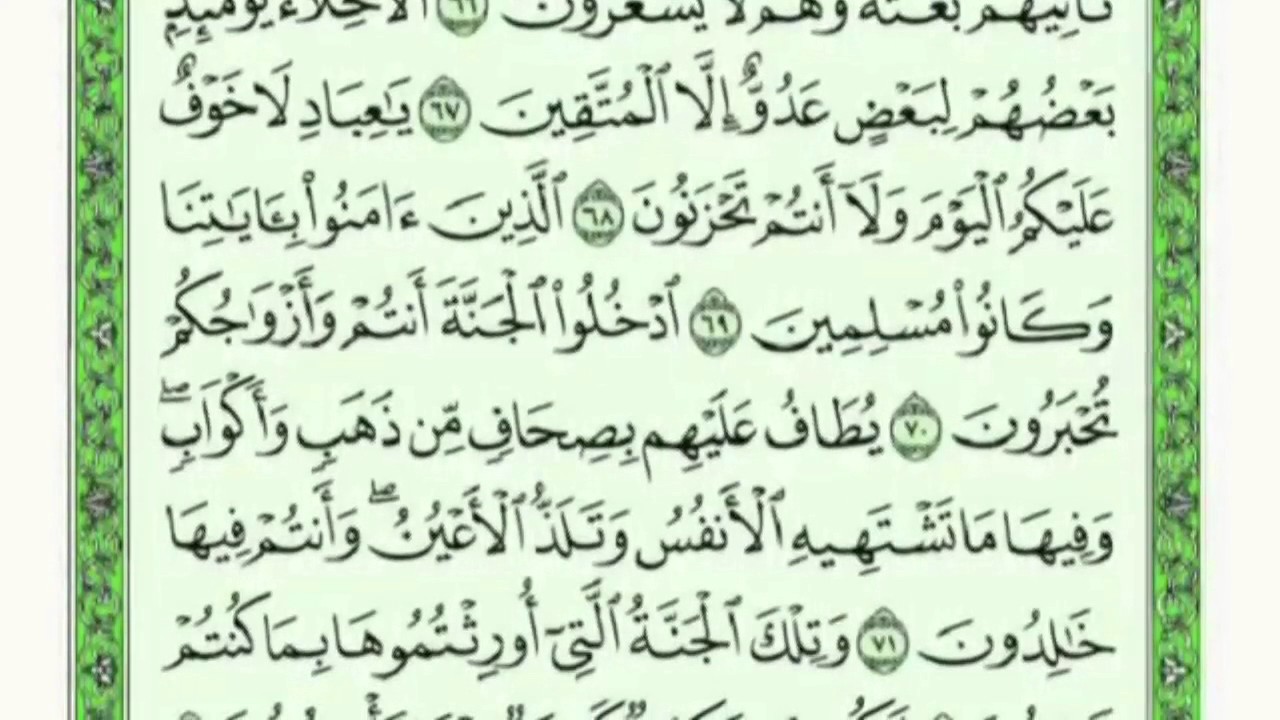 تَأْتِيَهُم بَغْتَةً وَهُمْ لَا يَشْعُرُونَ ٦٦ ٱلْأَخِلَّآءُ يَوْمَئِذٍۭ
بَعْضُهُمْ لِبَعْضٍ عَدُوٌّ إِلَّا ٱلْمُتَّقِينَ ٦٧ يَٰعِبَادِ لَا خَوْفٌ
عَلَيْكُمُ ٱلْيَوْمَ وَلَآ أَنتُمْ تَحْزَنُونَ ٦٨ ٱلَّذِينَ ءَامَنُوا۟ بِـَٔايَٰتِنَا
وَكَانُوا۟ مُسْلِمِينَ ٦٩ ٱدْخُلُوا۟ ٱلْجَنَّةَ أَنتُمْ وَأَزْوَٰجُكُمْ
تُحْبَرُونَ ٧٠ يُطَافُ عَلَيْهِم بِصِحَافٍ مِّن ذَهَبٍ وَأَكْوَابٍ ۖ
وَفِيهَا مَا تَشْتَهِيهِ ٱلْأَنفُسُ وَتَلَذُّ ٱلْأَعْيُنُ ۖ وَأَنتُمْ فِيهَا
خَٰلِدُونَ ٧١ وَتِلْكَ ٱلْجَنَّةُ ٱلَّتِىٓ أُورِثْتُمُوهَا بِمَا كُنتُمْ